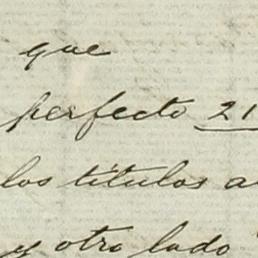 que
perfecto 21
los títulos a
y otro lado